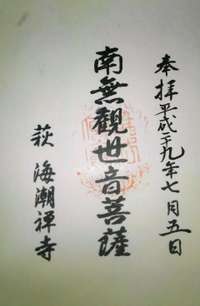 奉拝平成二十九年七月五日
南無觀世音菩薩
萩 海潮禅寺